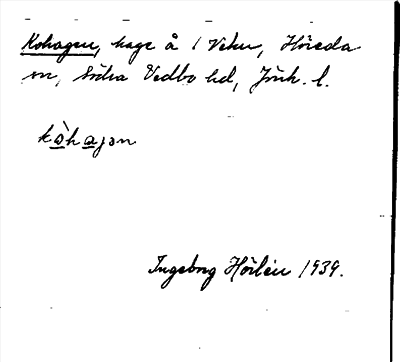 Kohagen, hage å 1 Veku, Höreda
sn, Södra Vedbo hd, Jönk. l.
kòhagən
Ingeborg Hörlén 1939.